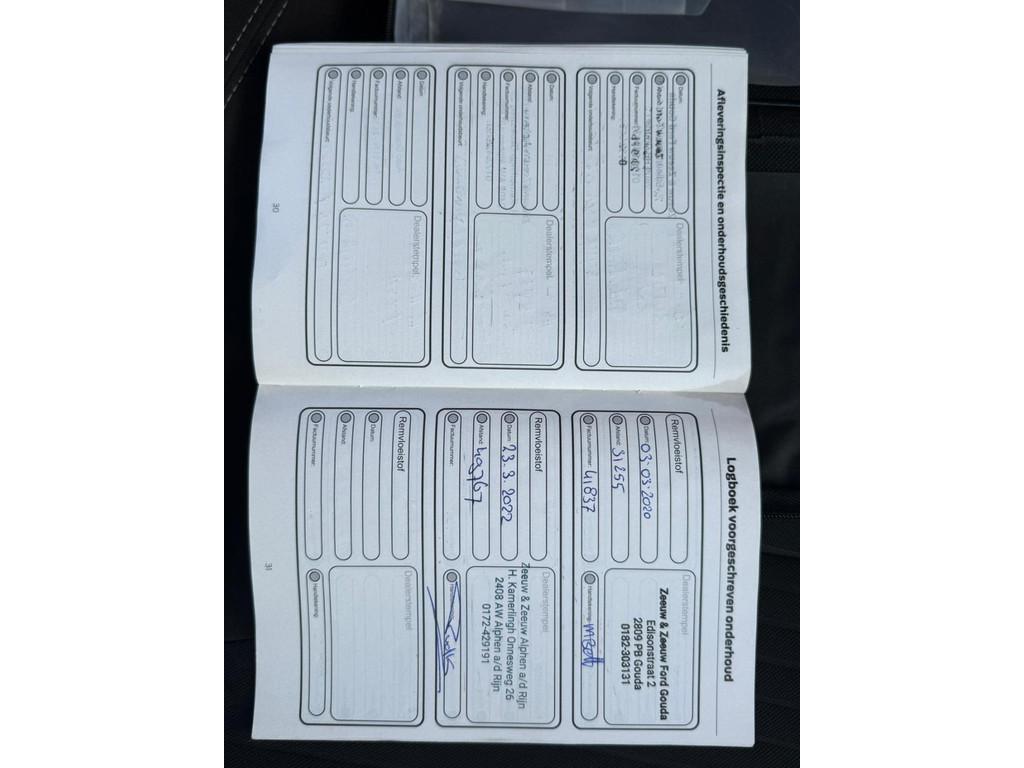 Afleveringsinspectie en onderhoudsgeschiedenis
Datum:
Afstand:
Factuurnummer:
Handtekening:
Volgende onderhoudsbeurt:
Dealerstempel
Datum:
Afstand:
Factuurnummer:
Handtekening:
Volgende onderhoudsbeurt:
Dealerstempel
Datum:
Afstand:
Factuurnummer:
Handtekening:
Volgende onderhoudsbeurt:
Dealerstempel
30
Logboek voorgeschreven onderhoud
Remvloeistof
Datum: 03-03-2020
Afstand: 31255
Factuurnummer: 41837
Dealerstempel
Zeeuw & Zeeuw Ford Gouda
Edisonstraat 2
2809 PB Gouda
0182-303131
Handtekening:
Remvloeistof
Datum: 23.3.2022
Afstand: 49767
Factuurnummer:
Dealerstempel
Zeeuw & Zeeuw Alphen a/d Rijn
H. Kamerlingh Onnesweg 26
2408 AW Alphen a/d Rijn
0172-429191
Handtekening:
Remvloeistof
Datum:
Afstand:
Factuurnummer:
Dealerstempel
Handtekening:
31